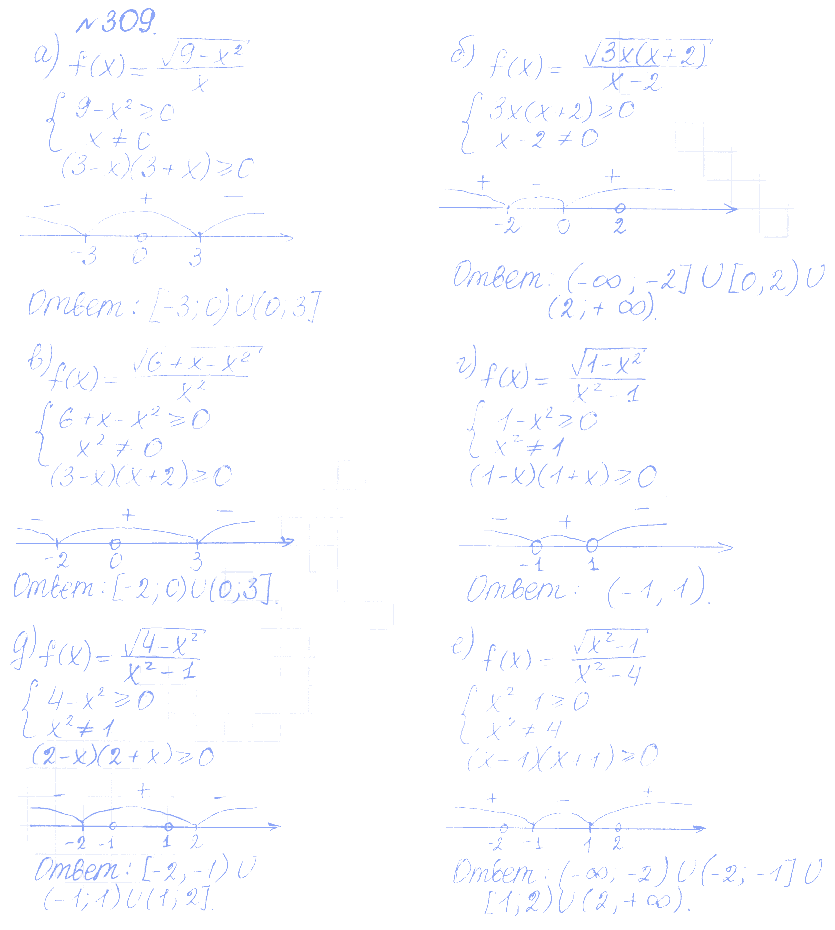 №309.
а) f(x) = √(9-x²)/x
{ 9-x² ≥ 0
x ≠ 0
(3-x)(3+x) ≥ 0
- + -
-3 0 3
Ответ: [-3; 0)∪(0, 3]
б) f(x) = √(3x(x+2))/(x-2)
{ 3x(x+2) ≥ 0
x-2 ≠ 0
+ - +
-2 0 2
Ответ: (-∞; -2]∪[0, 2)∪
(2; +∞).
в) f(x) = √(6+x-x²)/x²
{ 6+x-x² ≥ 0
x² ≠ 0
(3-x)(x+2) ≥ 0
- + -
-2 0 3
Ответ: [-2; 0)∪(0; 3].
г) f(x) = √(1-x²)/(x²-1)
{ 1-x² ≥ 0
x² ≠ 1
(1-x)(1+x) ≥ 0
- + -
-1 1
Ответ: (-1, 1).
д) f(x) = √(4-x²)/(x²-1)
{ 4-x² ≥ 0
x² ≠ 1
(2-x)(2+x) ≥ 0
- + -
-2 -1 1 2
Ответ: [-2, -1)∪
(-1; 1)∪(1; 2].
е) f(x) = √(x²-1)/(x²-4)
{ x²-1 ≥ 0
x² ≠ 4
(x-1)(x+1) ≥ 0
+ - +
-2 -1 1 2
Ответ: (-∞, -2)∪(-2; -1]∪
[1; 2)∪(2, +∞).